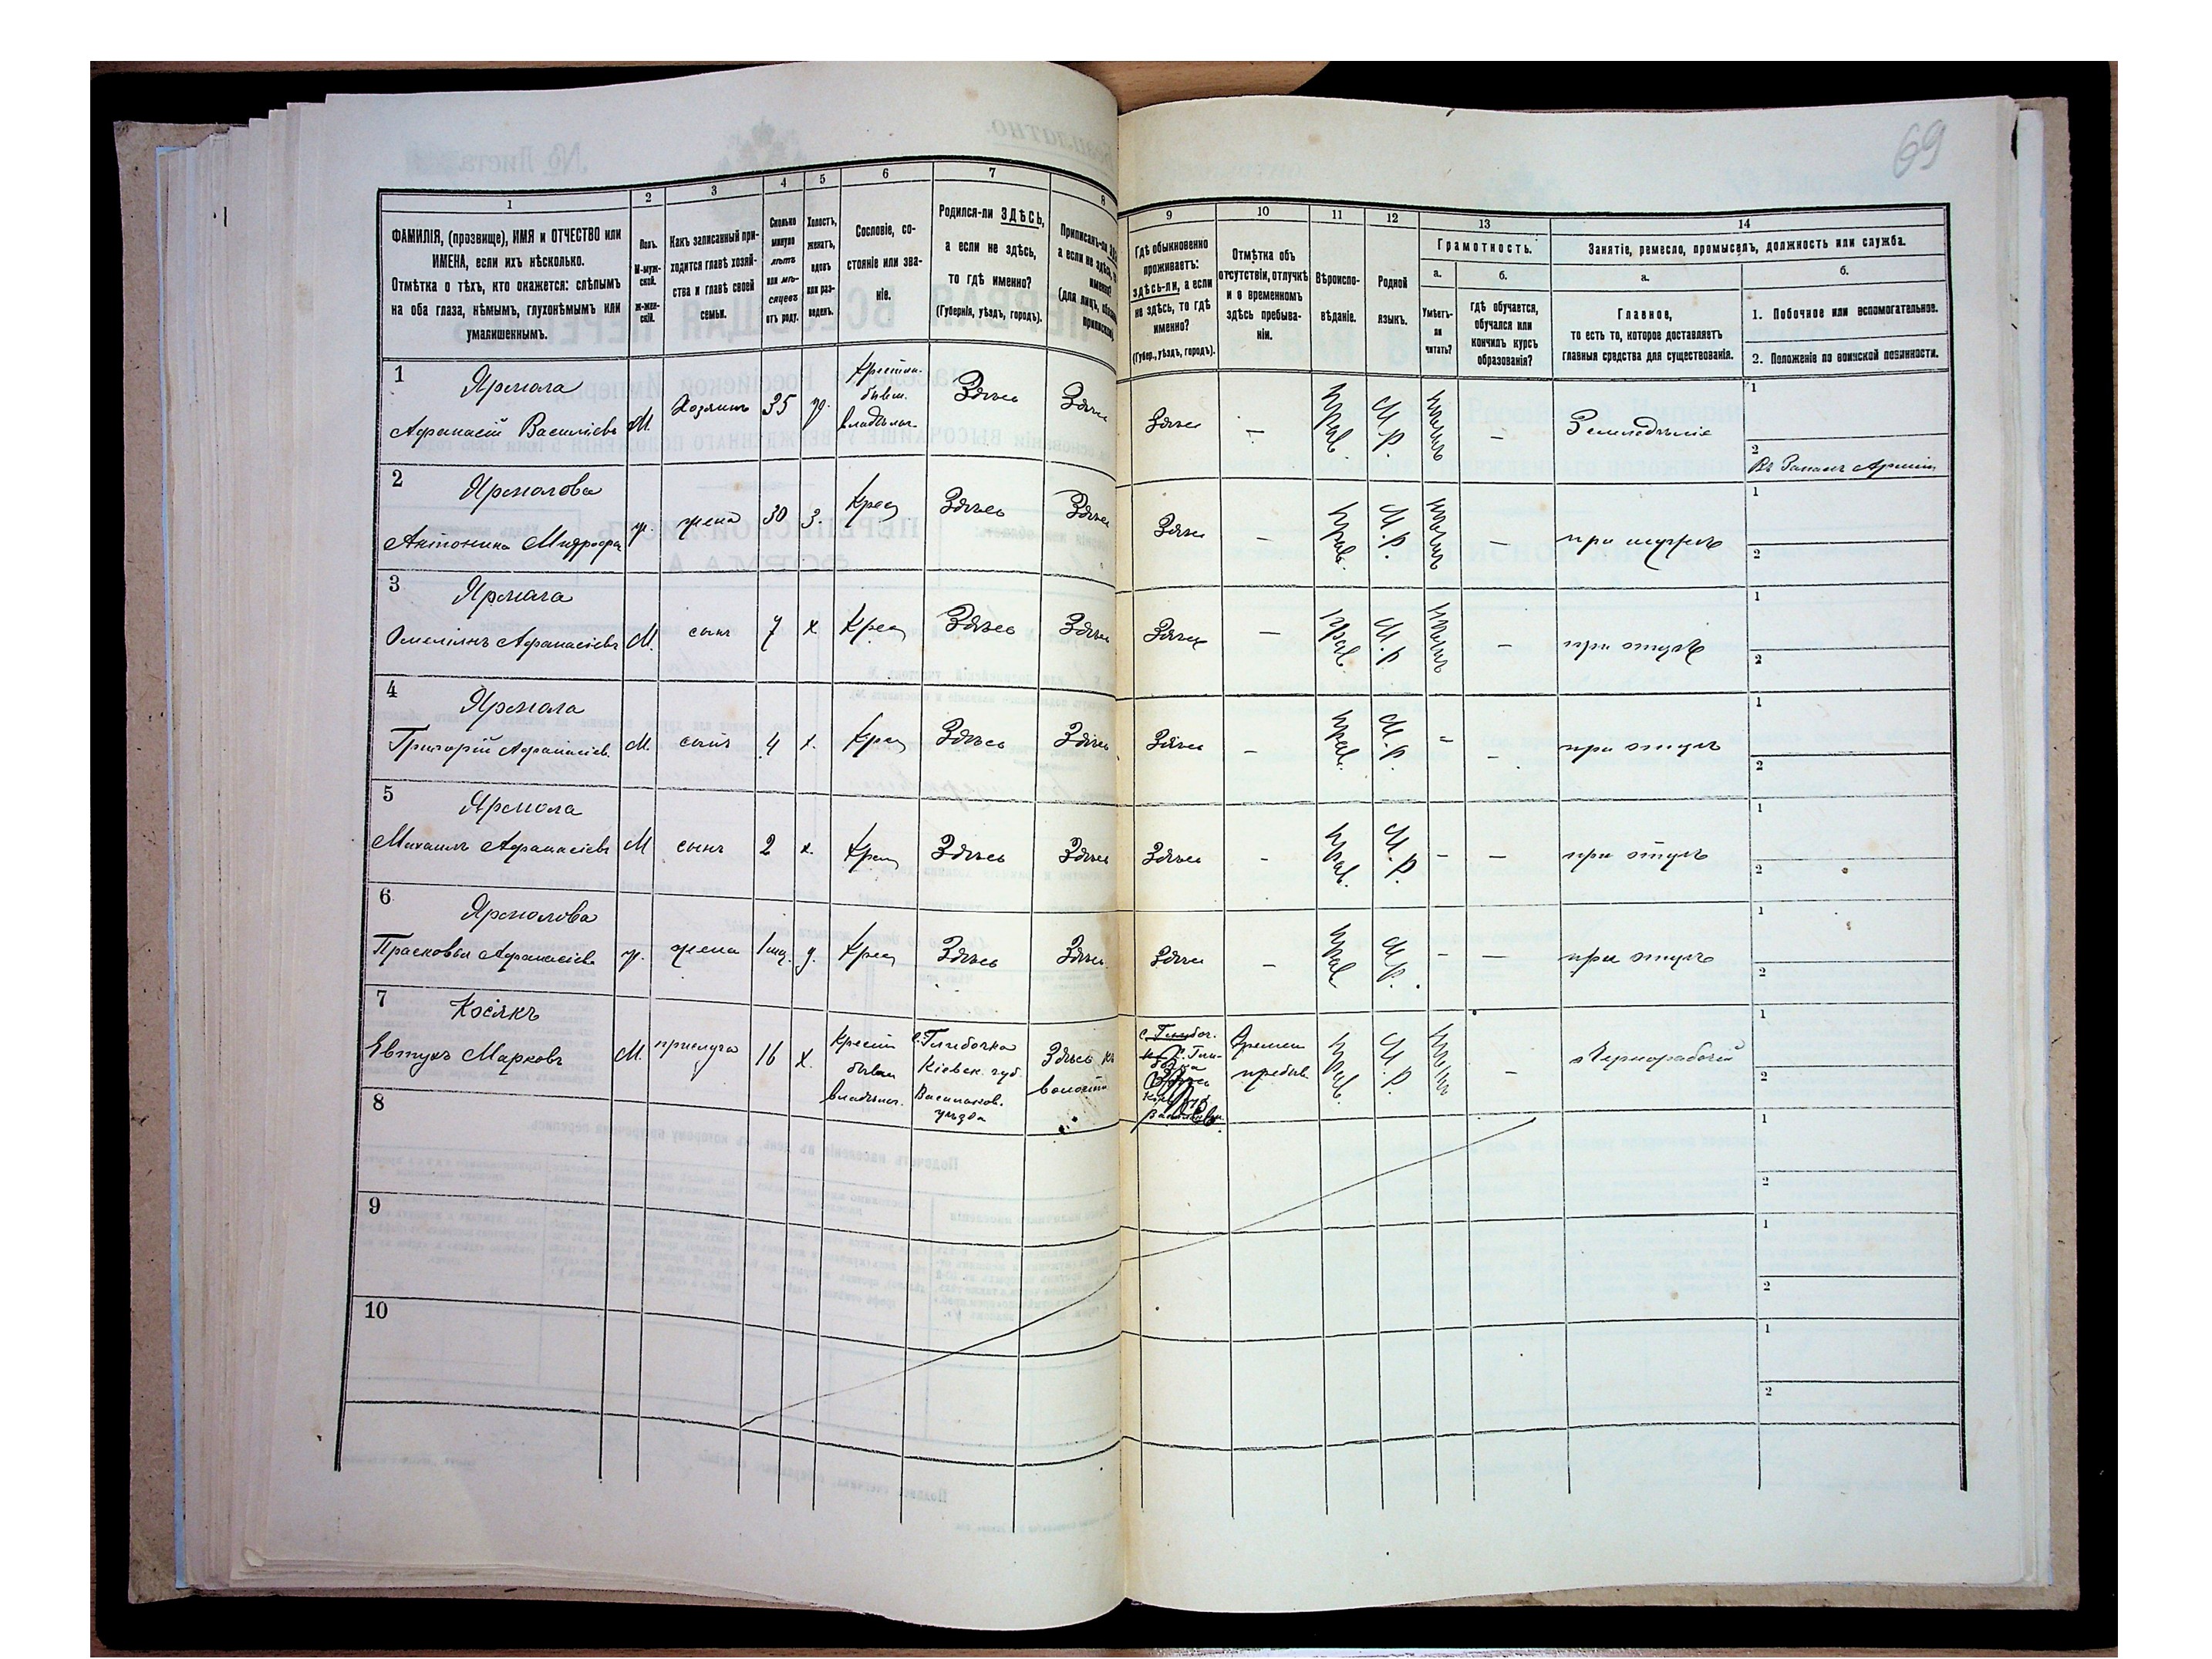 69
1
2
3
4
5
6
7
8
9
10
11
12
13
14
ФАМИЛІЯ, (прозвище), ИМЯ и ОТЧЕСТВО или
ИМЕНА, если ихъ нѣсколько.
Отмѣтка о тѣхъ, кто окажется: слѣпымъ
на оба глаза, нѣмымъ, глухонѣмымъ или
умалишеннымъ.
Полъ.
М-муж-
ской.
Ж-жен-
скій.
Какъ записанный при-
ходится главѣ хозяй-
ства и главѣ своей
семьи.
Сколько
минуло
лѣтъ
или мѣ-
сяцевъ
отъ роду.
Холостъ,
женатъ,
вдовъ
или раз-
веденъ.
Сословіе, со-
стояніе или зва-
ніе.
Родился-ли ЗДѢСЬ,
а если не здѣсь,
то гдѣ именно?
(Губернія, уѣздъ, городъ).
Приписанъ-ли
а если не здѣсь,
именно?
(для лицъ,
Гдѣ обыкновенно
проживаетъ:
здѣсь-ли, а если
не здѣсь, то гдѣ
именно?
(Губер., уѣздъ, городъ).
Отмѣтка объ
отсутствіи, отлучкѣ
и о временномъ
здѣсь пребыва-
ніи.
Вѣроиспо-
вѣданіе.
Родной
языкъ.
Грамотность.
а.
б.
Умѣетъ-
ли
читать?
Гдѣ обучается,
обучался или
кончилъ курсъ
образованія?
Занятіе, ремесло, промыселъ, должность или служба.
а.
б.
Главное,
то есть то, которое доставляетъ
главныя средства для существованія.
1. Побочное или вспомогательное.
2. Положеніе по воинской повинности.
1 Ярмола
Афанасій Василіевъ М Хозяинъ 35 ж. Крестьян. бывш. владѣльч. Здѣсь Здѣсь Здѣсь — Прав. М.Р. — Земледѣліе
1
2 Въ Запасѣ Арміи
2 Ярмолова
Антонина Митроф ж. жена 30 з. Крест Здѣсь Здѣсь Здѣсь — Прав. М.Р. — при мужѣ
1
2
3 Ярмола
Омеліянъ Афанасіевъ М. сынъ 7 х Крест Здѣсь Здѣсь Здѣсь — Прав. М.Р — при отцѣ
1
2
4 Ярмола
Григорій Афанасіев. М. сынъ 4 х. Крест Здѣсь Здѣсь Здѣсь — Прав. М.Р. — — при отцѣ
1
2
5 Ярмола
Михаилъ Афанасіевъ М сынъ 2 х. Крест Здѣсь Здѣсь Здѣсь — Прав. М.Р. — — при отцѣ
1
2
6 Ярмолова
Прасковья Афанасіева ж. Крест Здѣсь Здѣсь Здѣсь — Прав М.Р. — — при отцѣ
1
2
7 Косякъ
Евтухъ Марковъ М. прислуга 16 х. Крестьян бывш владѣльч. с. Глибочка Кіевск. губ. Васильков. уѣзда Здѣсь къ волости Времен пребыв. Прав. М.Р. — Чернорабочій
1
2
8
1
2
9
1
2
10
1
2